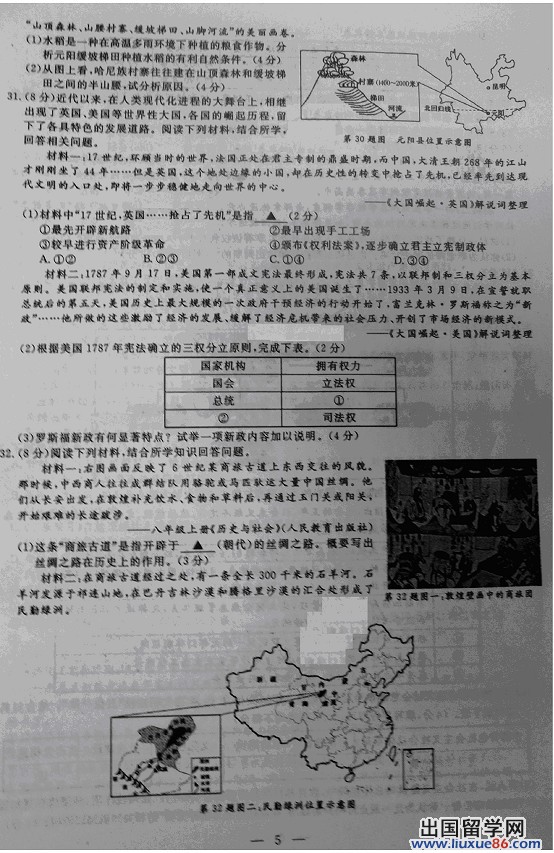 “山顶森林、山腰村寨、缓坡梯田、山脚河流”的美丽画卷。
(1)水稻是一种在高温多雨环境下种植的粮食作物。分
析元阳缓坡梯田种植水稻的有利自然条件。(4分)
(2)从图上看,哈尼族村寨往往建在山顶森林和缓坡梯
田之间的半山腰,试分析原因。(4分)
森林
村寨(1400~2000米)
梯田
河流
昆明
北回归线
元阳
第30题图 元阳县位置示意图
31.(8分)近代以来,在人类现代化进程的大舞台上,相继
出现了英国、美国等世界性大国,各国的崛起历程,留
下了各具特色的发展道路。阅读下列材料,结合所学,
回答相关问题。
材料一:17世纪,环顾当时的世界,法国正处在君主专制的鼎盛时期,而中国,大清王朝268年的江山
才刚刚坐了44年……但是英国,这个地处边缘的小国,却在历史性的转变中抢占了先机,已经率先到达现
代文明的入口处,即将一步步稳健地走向世界的中心。
——《大国崛起·英国》解说词整理
(1)材料中“17世纪,英国……抢占了先机”是指 ▲ (2分)
①最先开辟新航路 ②最早出现手工工场
③较早进行资产阶级革命 ④颁布《权利法案》,逐步确立君主立宪制政体
A.①② B.②③ C.①④ D.③④
材料二:1787年9月17日,美国第一部成文宪法最终形成,宪法共7条,以联邦制和三权分立为基本
原则。美国联邦宪法的制定和实施,使一个真正意义上的美国诞生了……1933年3月9日,在宣誓就职
总统后的第五天,美国历史上最大规模的一次政府干预经济的行动开始了,富兰克林·罗斯福称之为“新
政”……他所做的这些激励了经济的发展、缓解了经济危机带来的社会压力、开创了市场经济的新模式。
——《大国崛起·美国》解说词整理
(2)根据美国1787年宪法确立的三权分立原则,完成下表。(2分)
国家机构 拥有权力
国会 立法权
总统 ①
② 司法权
(3)罗斯福新政有何显著特点?试举一项新政内容加以说明。(4分)
32.(8分)阅读下列材料,结合所学知识回答问题。
材料一:右图画面反映了6世纪某商旅古道上东西交往的风貌。
那时候,中西商人往往成群结队用骆驼或马匹驮运大量中国丝绸。他
们从长安出发,在敦煌补充饮水、食物和草料后,再通过玉门关或阳关,
开始艰难的长途跋涉。
——八年级上册《历史与社会》(人民教育出版社)
(1)这条“商旅古道”是指开辟于 ▲ (朝代)的丝绸之路。概要写出
丝绸之路在历史上的作用。(3分)
第32题图一:敦煌壁画中的商旅图
材料二:在商旅古道经过之处,有一条全长300千米的石羊河。石
羊河发源于祁连山地,在巴丹吉林沙漠和腾格里沙漠的汇合处形成了
民勤绿洲。
第32题图二:民勤绿洲位置示意图
— 5 —
出国留学网
www.liuxue86.com